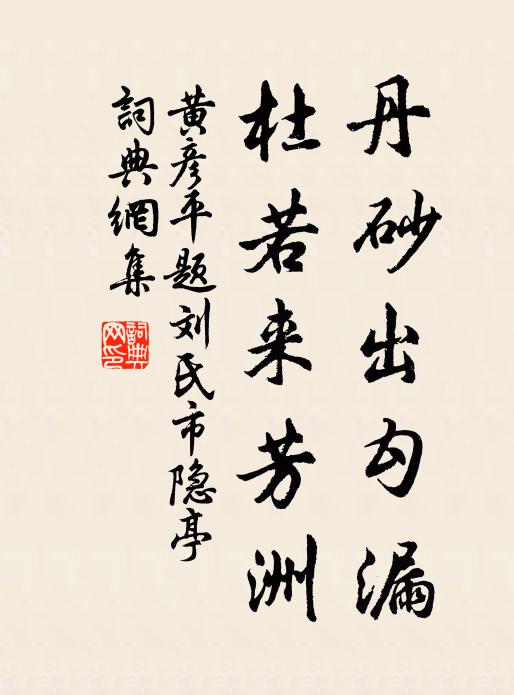 丹砂出勾漏
杜若来芳洲
黄彦平题刘氏市隐亭
詞典網集
詞典网印